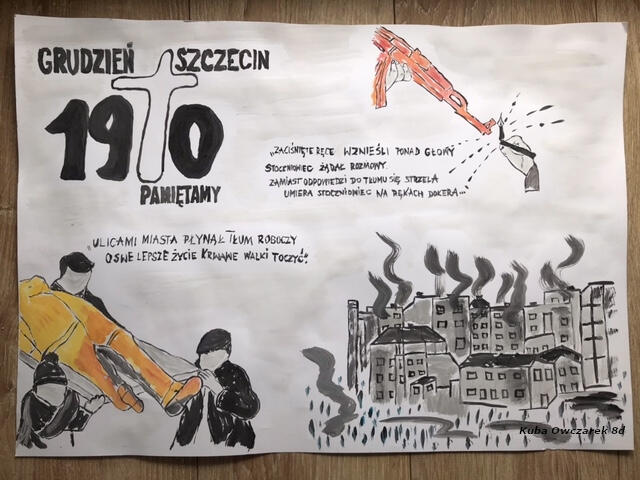 GRUDZIEŃ SZCZECIN
1970
PAMIĘTAMY
„ZACIŚNIĘTE RĘCE WZNIEŚLI PONAD GŁOWY
STOCZNIOWIEC ŻĄDAŁ ROZMOWY.
ZAMIAST ODPOWIEDZI DO TŁUMU SIĘ STRZELA
UMIERA STOCZNIOWIEC NA RĘKACH DOKERA..."
„ULICAMI MIASTA PŁYNĄŁ TŁUM ROBOCZY
O SWE LEPSZE ŻYCIE KRWAWE WALKI TOCZYĆ".
Kuba Owczarek 8d